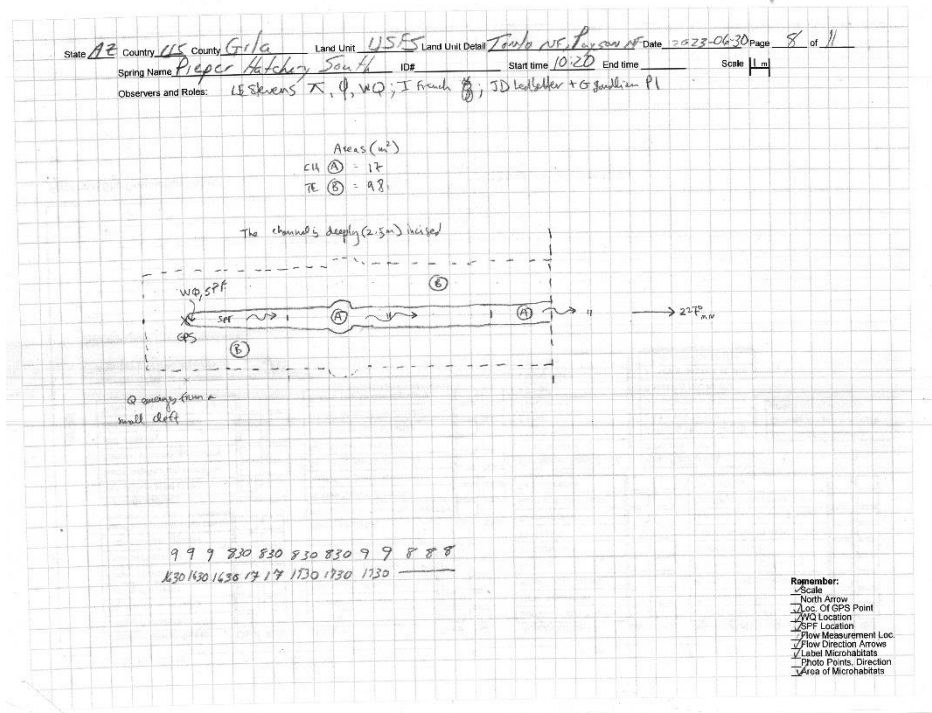 State AZ Country US County Gila Land Unit USFS Land Unit Detail Tonto NF, Payson Date 2023-06-30 Page 8 of 11
Spring Name Pieper Hatchery South ID# Start time 10:20 End time Scale 1 m
Observers and Roles: LE Stevens , Q, WQ; I French ; JD Ledbetter + G PI
Areas (m²)
CH (A) = 17
TE (B) = 98
The channel is deeply (2.5m) incised
(B)
WQ, SPF
SPF (A) (A) 227°mn
GPS
(B)
Q emerges from a
small cleft
9 9 9 830 830 830 830 9 9 8 8 8
1630 1630 1630 17 17 1730 1730 1730
Remember:
Scale
North Arrow
Loc. Of GPS Point
WQ Location
SPF Location
Flow Measurement Loc.
Flow Direction Arrows
Label Microhabitats
Photo Points, Direction
Area of Microhabitats